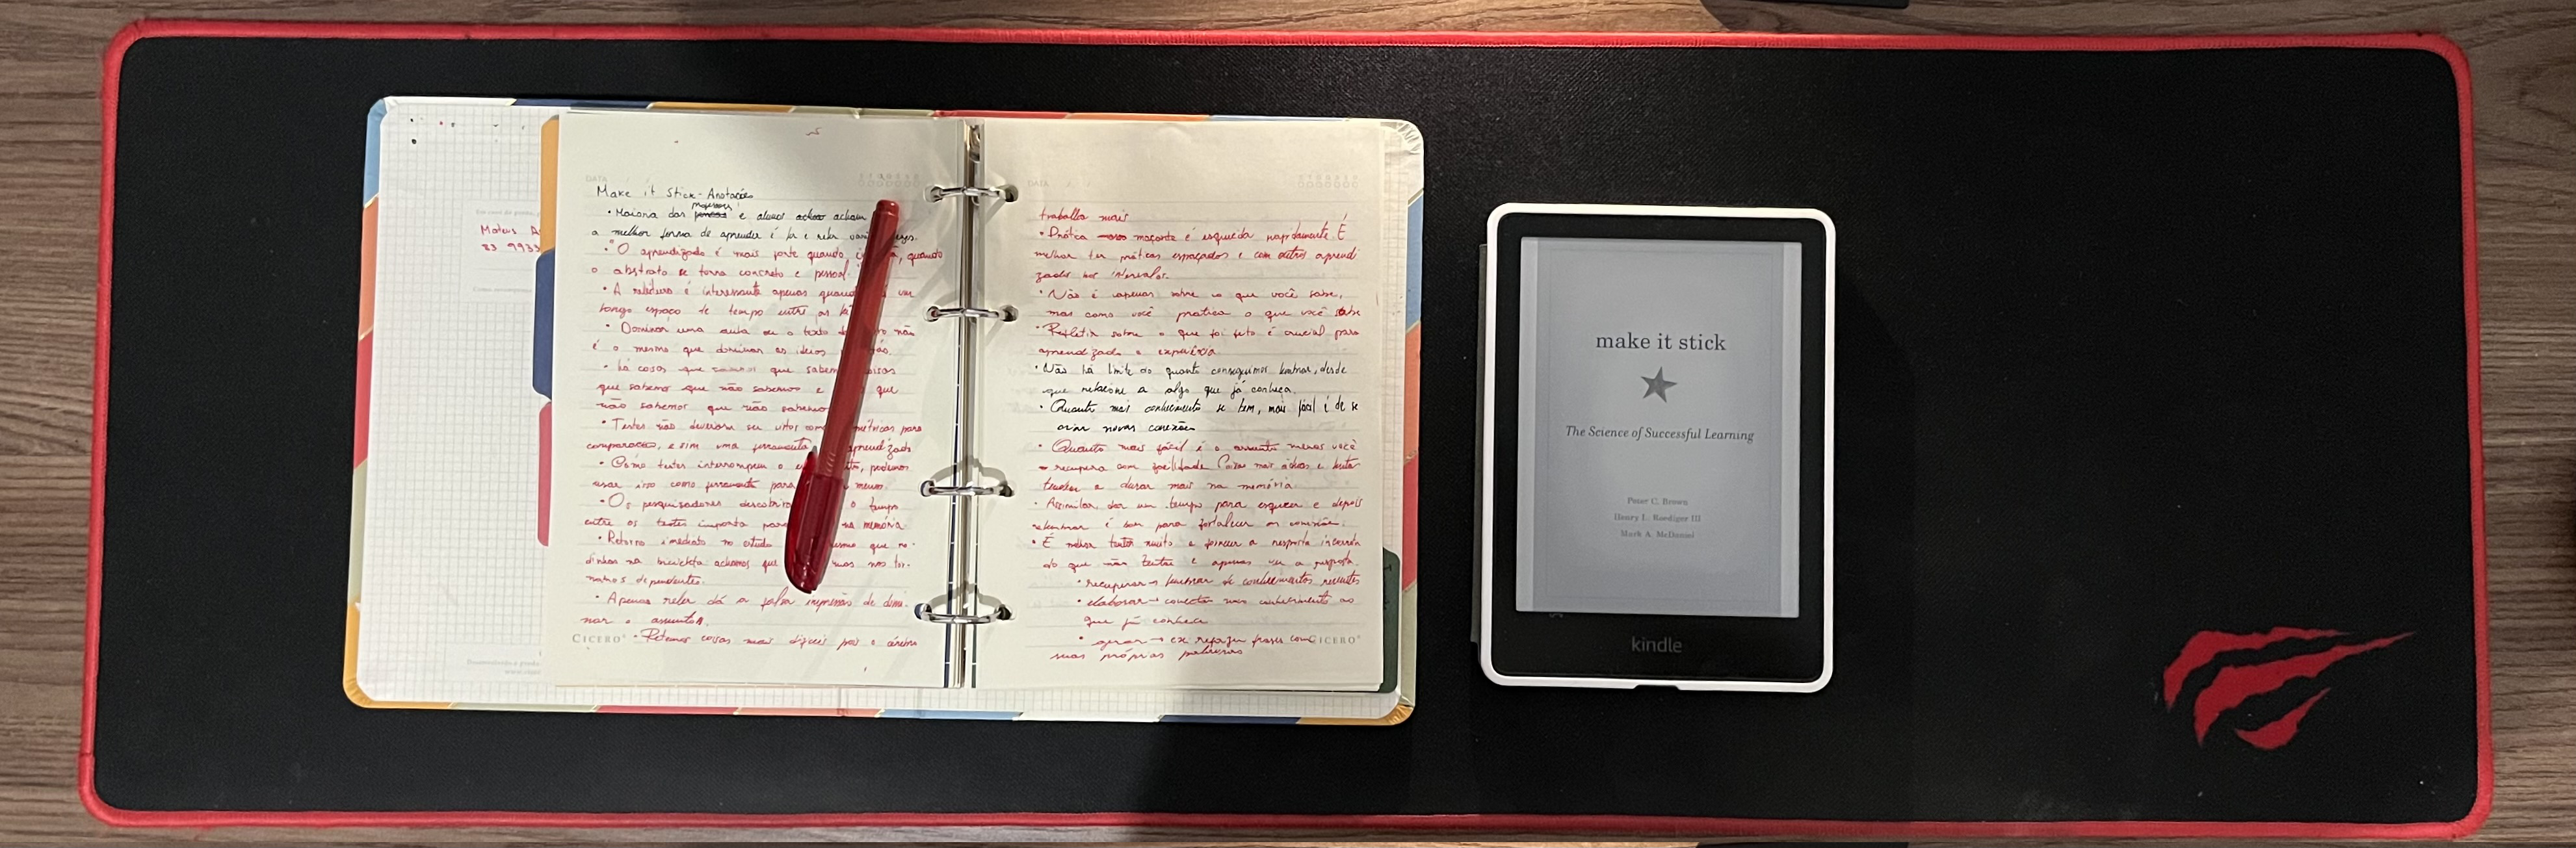 Mateus
DATA
Make it Stick - Anotações
professores
• Maioria dos e alunos acham
a melhor forma de aprender é ler e reler várias vezes.
• "O aprendizado é mais forte quando , quando
o abstrato se torna concreto e pessoal.
• A releitura é interessante apenas quando um
longo espaço de tempo entre as
• Dominar uma aula ou o texto não
é o mesmo que dominar as ideias
• há coisas que que sabemos coisas
que sabemos que não sabemos e que
não sabemos que não sabemos
• Testes não deveriam ser vistos como métricas para
comparação, e sim uma ferramenta aprendizado
• Como testes interrompem o , podemos
usar isso como ferramenta para menos.
• Os pesquisadores descobriram o tempo
entre os testes importa para na memória.
• Retorno imediato no estudo mesmo que ro-
dinhas na bicicleta achamos que mas nos tor-
namos dependentes.
• Apenas reler dá a falsa impressão de domi-
nar o assunto.
CICERO • Retemos coisas mais difíceis pois o cérebro
DATA
trabalha mais
• Prática maçante é esquecida rapidamente É
melhor ter práticas espaçadas e com outros aprendi
zados nos intervalos.
• Não é apenas sobre o que você sabe,
mas como você pratica o que você sabe
• Refletir sobre o que foi feito é crucial para
aprendizado e experiência.
• Não há limite do quanto conseguimos lembrar, desde
que relacione a algo que já conheça.
• Quanto mais conhecimento se tem, mais fácil é de se
criar novas conexões
• Quanto mais fácil é o assunto menos você
recupera com facilidade Coisas mais e
tendem a durar mais na memória.
• Assimilar, dar um tempo para esquecer e depois
relembrar é bom para fortalecer as conexões.
• É melhor tentar muito e fornecer a resposta incorreta
do que não tentar e apenas ver a resposta.
• recuperar → lembrar de conhecimentos recentes
• elaborar → conectar novo conhecimento ao
que já conhece
• gerar → ex refazer frases com CICERO
suas próprias palavras
make it stick
The Science of Successful Learning
Peter C. Brown
Henry L. Roediger III
Mark A. McDaniel
kindle